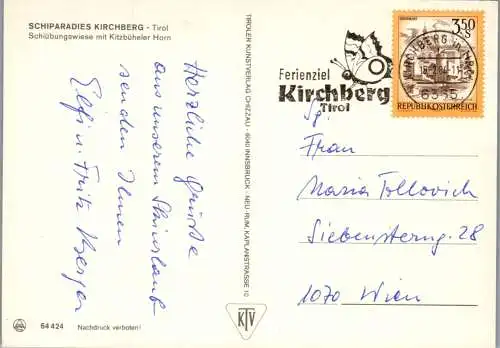 SCHIPARADIES KIRCHBERG - Tirol
Schiübungswiese mit Kitzbüheler Horn
Herzliche Grüße
aus unserem Skiurlaub
senden Ihnen
Elfi u. Fritz Berger
64424 Nachdruck verboten!
TIROLER KUNSTVERLAG CHIZZALI - 6040 INNSBRUCK - NEU-RUM, KAPLANSTRASSE 10
KTV
Ferienziel
Kirchberg
Tirol
3,50
S
KIRCHBERG IN TIROL
6365
REPUBLIK ÖSTERREICH
Frau
Maria Tollovich
Siebensterng. 28
1070 Wien